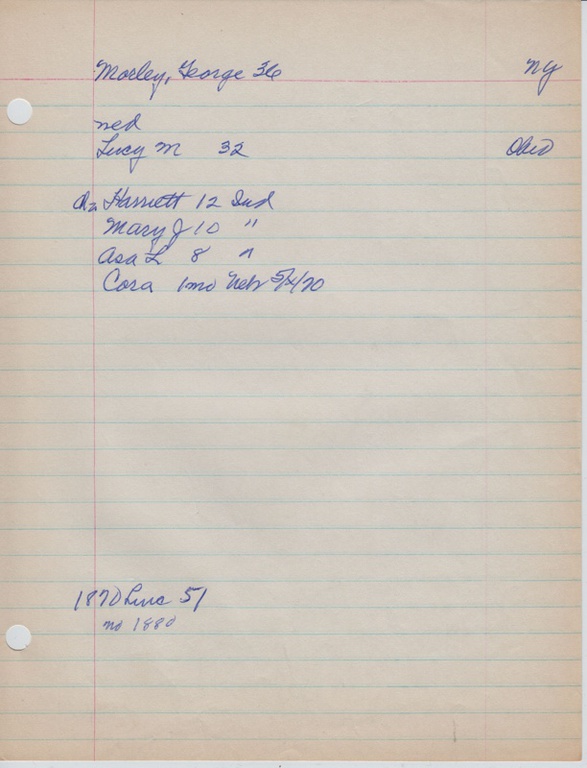 Morley, George 36 NY
med
Lucy M 32 Ohio
Ch: Harriett 12 Ind
Mary J 10 "
Asa L 8 "
Cora 1mo Neb 5/4/70
1870 51
no 1880